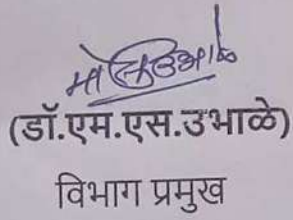 (डॉ.एम.एस.उभाळे)
विभाग प्रमुख